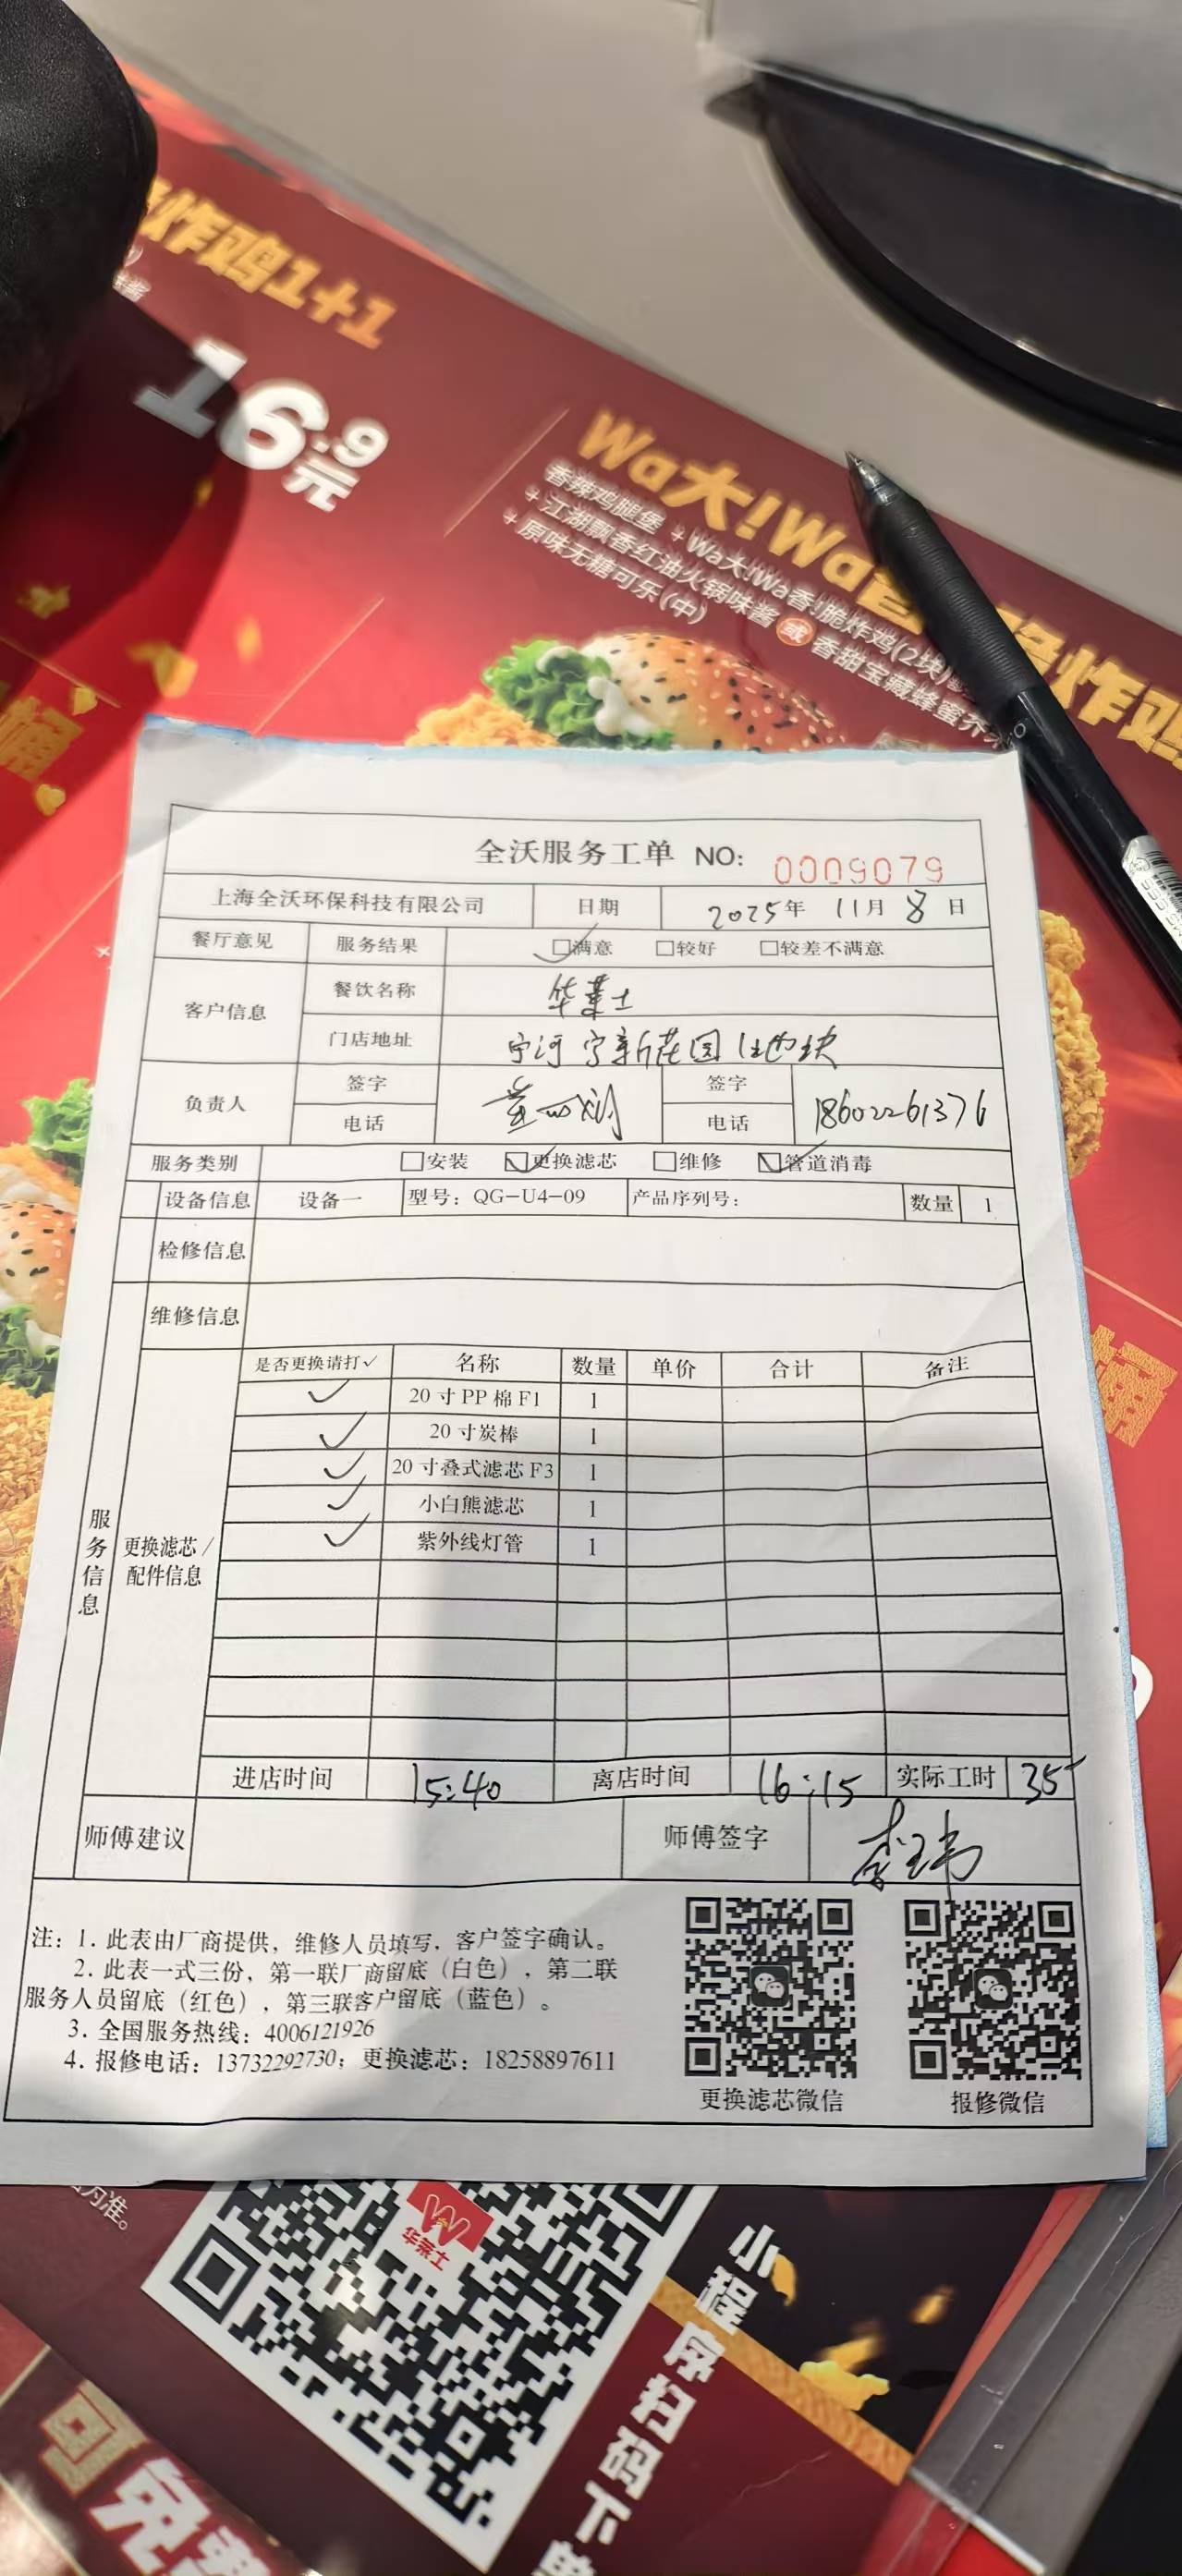 炸鸡1+1
16.9元
Wa大!Wa香!脆炸鸡
香辣鸡腿堡+Wa大!Wa香!脆炸鸡(2块)
+江湖飘香红油火锅味酱 或 香甜宝藏蜂蜜芥
+原味无糖可乐(中)
桶
全沃服务工单 NO: 0009079
上海全沃环保科技有限公司 日期 2025年 11月 8日
餐厅意见 服务结果 ☑满意 □较好 □较差不满意
客户信息 餐饮名称 华莱士
门店地址 宁河 宁新花园
负责人 签字 签字
电话 电话 18602261376
服务类别 □安装 ☑更换滤芯 □维修 ☑管道消毒
设备信息 设备一 型号：QG-U4-09 产品序列号： 数量 1
检修信息
维修信息
服务信息
更换滤芯/配件信息
是否更换请打✓ 名称 数量 单价 合计 备注
✓ 20寸PP棉F1 1
✓ 20寸炭棒 1
✓ 20寸叠式滤芯F3 1
✓ 小白熊滤芯 1
✓ 紫外线灯管 1
进店时间 15:40 离店时间 16:15 实际工时 35
师傅建议 师傅签字
注：1. 此表由厂商提供，维修人员填写，客户签字确认。
2. 此表一式三份，第一联厂商留底（白色），第二联
服务人员留底（红色），第三联客户留底（蓝色）。
3. 全国服务热线：4006121926
4. 报修电话：13732292730；更换滤芯：18258897611
更换滤芯微信 报修微信
为准。
华莱士
小程序扫码下单
可免费